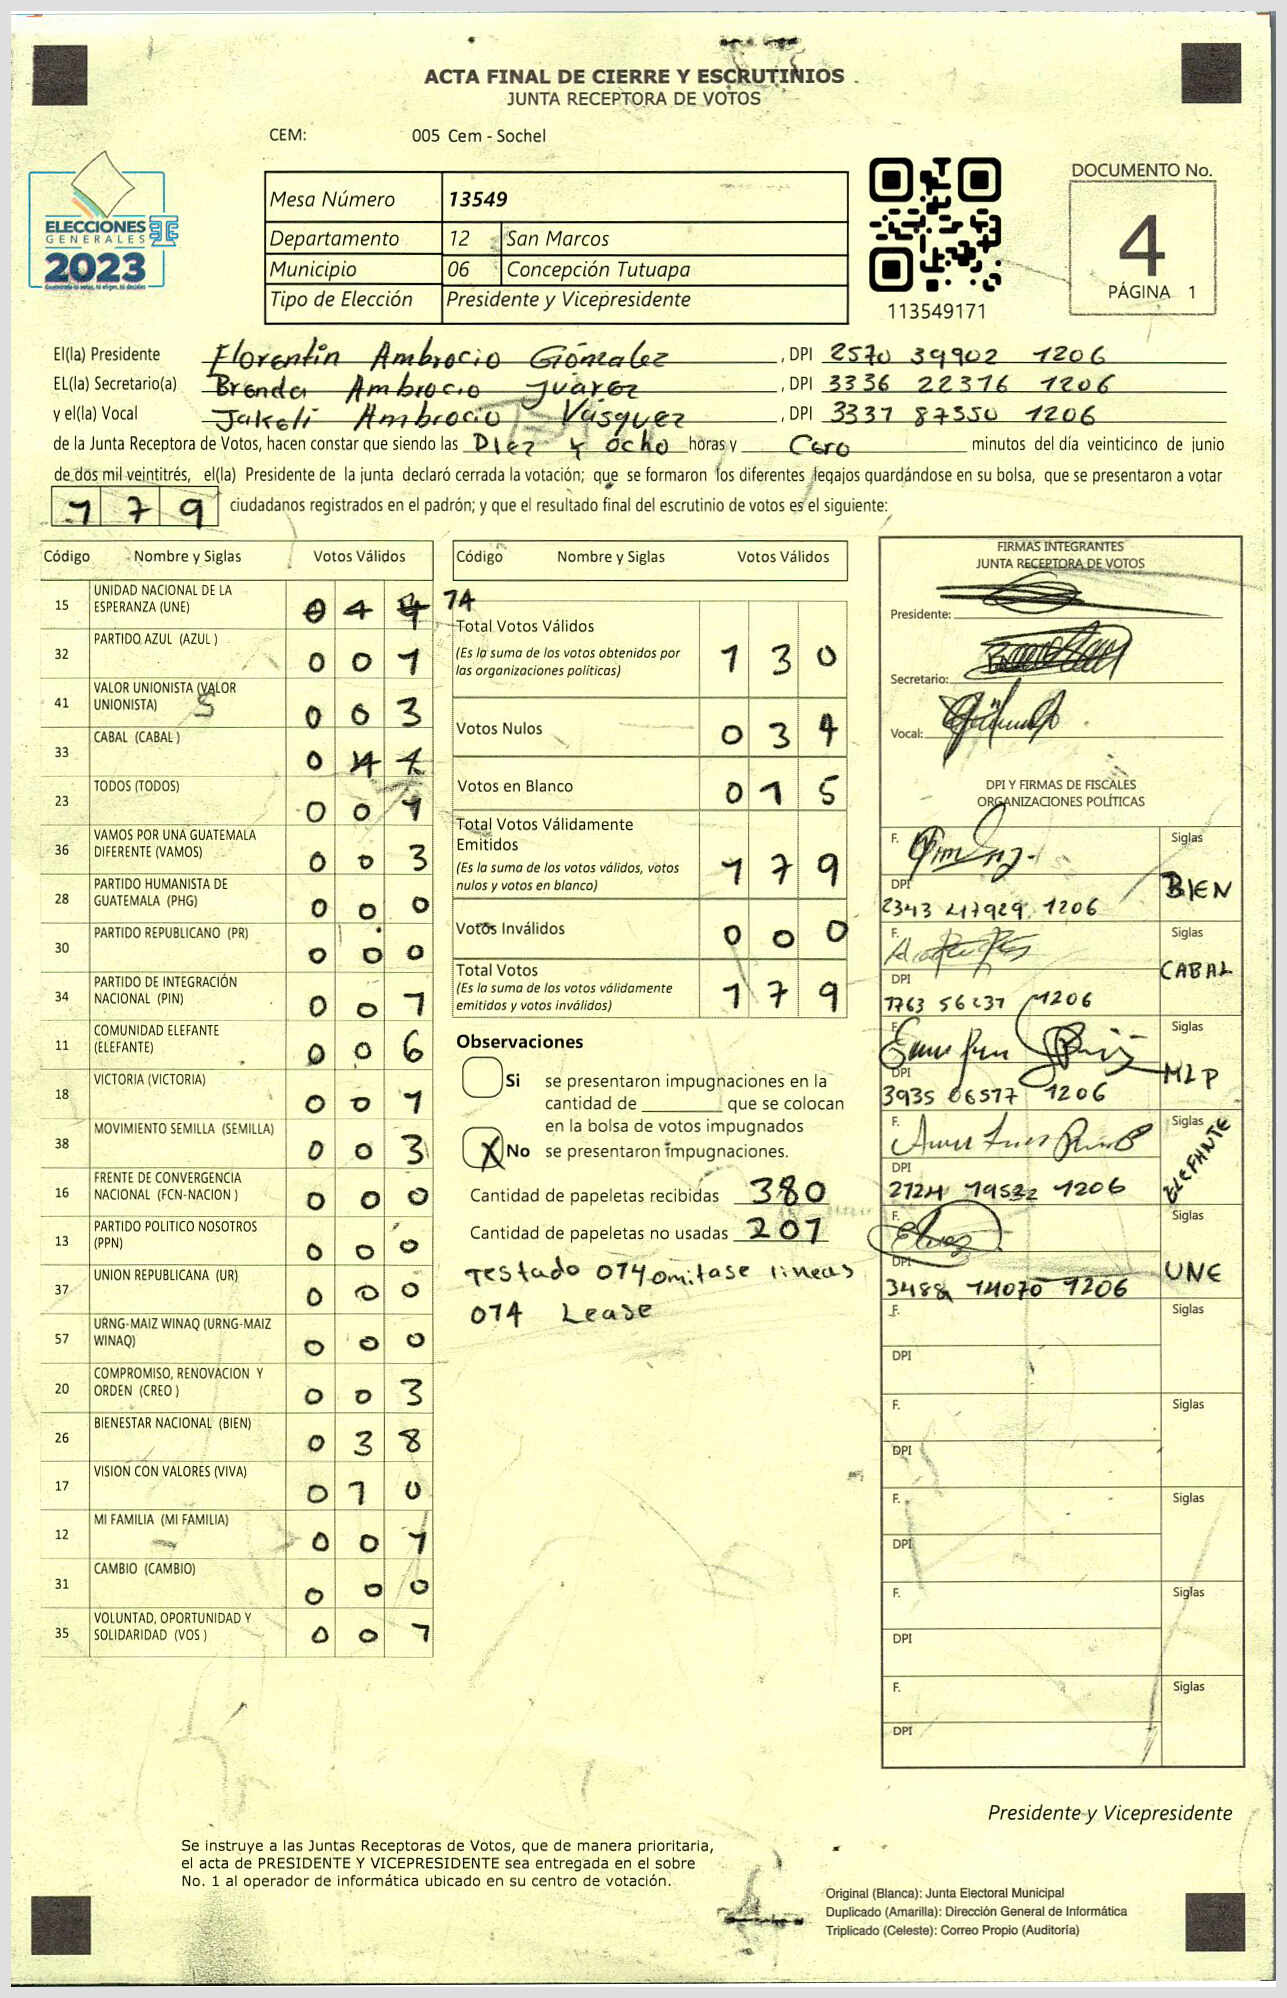 ACTA FINAL DE CIERRE Y ESCRUTINIOS
JUNTA RECEPTORA DE VOTOS
CEM: 005 Cem - Sochel
ELECCIONES
GENERALES
2023
Mesa Número 13549
Departamento 12 San Marcos
Municipio 06 Concepción Tutuapa
Tipo de Elección Presidente y Vicepresidente
113549171
DOCUMENTO No.
4
PÁGINA 1
El(la) Presidente Florentin Ambrocio Gónzalez, DPI 2570 39902 1206
EL(la) Secretario(a) Brenda Ambrocio Juárez, DPI 3336 22376 1206
y el(la) Vocal Jakeli Ambrocio Vásquez, DPI 3337 87550 1206
de la Junta Receptora de Votos, hacen constar que siendo las Diez y ocho horas y Cero minutos del día veinticinco de junio
de dos mil veintitrés, el(la) Presidente de la junta declaró cerrada la votación; que se formaron los diferentes legajos guardándose en su bolsa, que se presentaron a votar
179 ciudadanos registrados en el padrón; y que el resultado final del escrutinio de votos es el siguiente:
Código Nombre y Siglas Votos Válidos
15 UNIDAD NACIONAL DE LA ESPERANZA (UNE) 0 74
32 PARTIDO AZUL (AZUL ) 0 0 1
41 VALOR UNIONISTA (VALOR UNIONISTA) 0 0 3
33 CABAL (CABAL ) 0
23 TODOS (TODOS) 0 0 1
36 VAMOS POR UNA GUATEMALA DIFERENTE (VAMOS) 0 0 3
28 PARTIDO HUMANISTA DE GUATEMALA (PHG) 0 0 0
30 PARTIDO REPUBLICANO (PR) 0 0 0
34 PARTIDO DE INTEGRACIÓN NACIONAL (PIN) 0 0 1
11 COMUNIDAD ELEFANTE (ELEFANTE) 0 0 6
18 VICTORIA (VICTORIA) 0 0 1
38 MOVIMIENTO SEMILLA (SEMILLA) 0 0 3
16 FRENTE DE CONVERGENCIA NACIONAL (FCN-NACION ) 0 0 0
13 PARTIDO POLITICO NOSOTROS (PPN) 0 0 0
37 UNION REPUBLICANA (UR) 0 0 0
57 URNG-MAIZ WINAQ (URNG-MAIZ WINAQ) 0 0 0
20 COMPROMISO, RENOVACION Y ORDEN (CREO ) 0 0 3
26 BIENESTAR NACIONAL (BIEN) 0 3 8
17 VISION CON VALORES (VIVA) 0 1 0
12 MI FAMILIA (MI FAMILIA) 0 0 1
31 CAMBIO (CAMBIO) 0 0 0
35 VOLUNTAD, OPORTUNIDAD Y SOLIDARIDAD (VOS ) 0 0 1
Código Nombre y Siglas Votos Válidos
Total Votos Válidos 1 3 0
(Es la suma de los votos obtenidos por
las organizaciones políticas)
Votos Nulos 0 3 4
Votos en Blanco 0 1 5
Total Votos Válidamente
Emitidos 1 7 9
(Es la suma de los votos válidos, votos
nulos y votos en blanco)
Votos Inválidos 0 0 0
Total Votos 1 7 9
(Es la suma de los votos válidamente
emitidos y votos inválidos)
Observaciones
Si se presentaron impugnaciones en la
cantidad de ________ que se colocan
en la bolsa de votos impugnados
X No se presentaron impugnaciones.
Cantidad de papeletas recibidas 380
Cantidad de papeletas no usadas 201
Testado 074 omitase lineas
074 Lease
FIRMAS INTEGRANTES
JUNTA RECEPTORA DE VOTOS
Presidente:
Secretario:
Vocal:
DPI Y FIRMAS DE FISCALES
ORGANIZACIONES POLÍTICAS
F. Siglas BIEN
DPI
2343 417929 1206
F. Siglas CABAL
DPI
1763 56237 1206
F. Siglas MLP
DPI
3935 06577 1206
F. Siglas ELEFANTE
DPI
2724 19532 1206
F. Siglas UNE
DPI
3488 14070 1206
F. Siglas
DPI
F. Siglas
DPI
F. Siglas
DPI
F. Siglas
DPI
F. Siglas
DPI
Presidente y Vicepresidente
Se instruye a las Juntas Receptoras de Votos, que de manera prioritaria,
el acta de PRESIDENTE Y VICEPRESIDENTE sea entregada en el sobre
No. 1 al operador de informática ubicado en su centro de votación.
Original (Blanca): Junta Electoral Municipal
Duplicado (Amarilla): Dirección General de Informática
Triplicado (Celeste): Correo Propio (Auditoría)